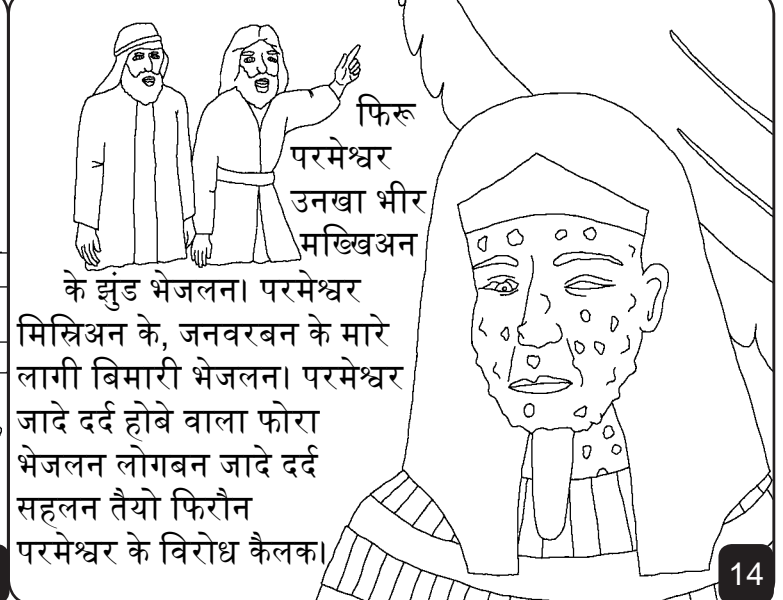 फिरू
परमेश्वर
उनखा भीर
मख्खिअन
के झुंड भेजलन। परमेश्वर
मिस्रिअन के, जनवरबन के मारे
लागी बिमारी भेजलन। परमेश्वर
जादे दर्द होबे वाला फोरा
भेजलन लोगबन जादे दर्द
सहलन तैयो फिरौन
परमेश्वर के विरोध कैलक।
14